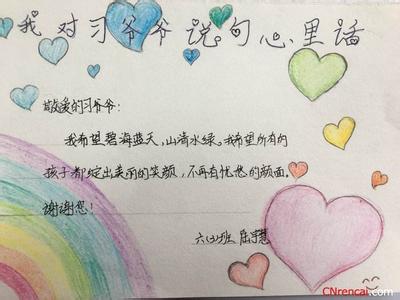 我对习爷爷说句心里话
敬爱的习爷爷:
我希望碧海蓝天,山清水绿。我希望所有的
孩子都绽出美丽的笑颜,不再有忧愁的颜面。
谢谢您!
六(3)班 屈宇慧
CNrencai.com